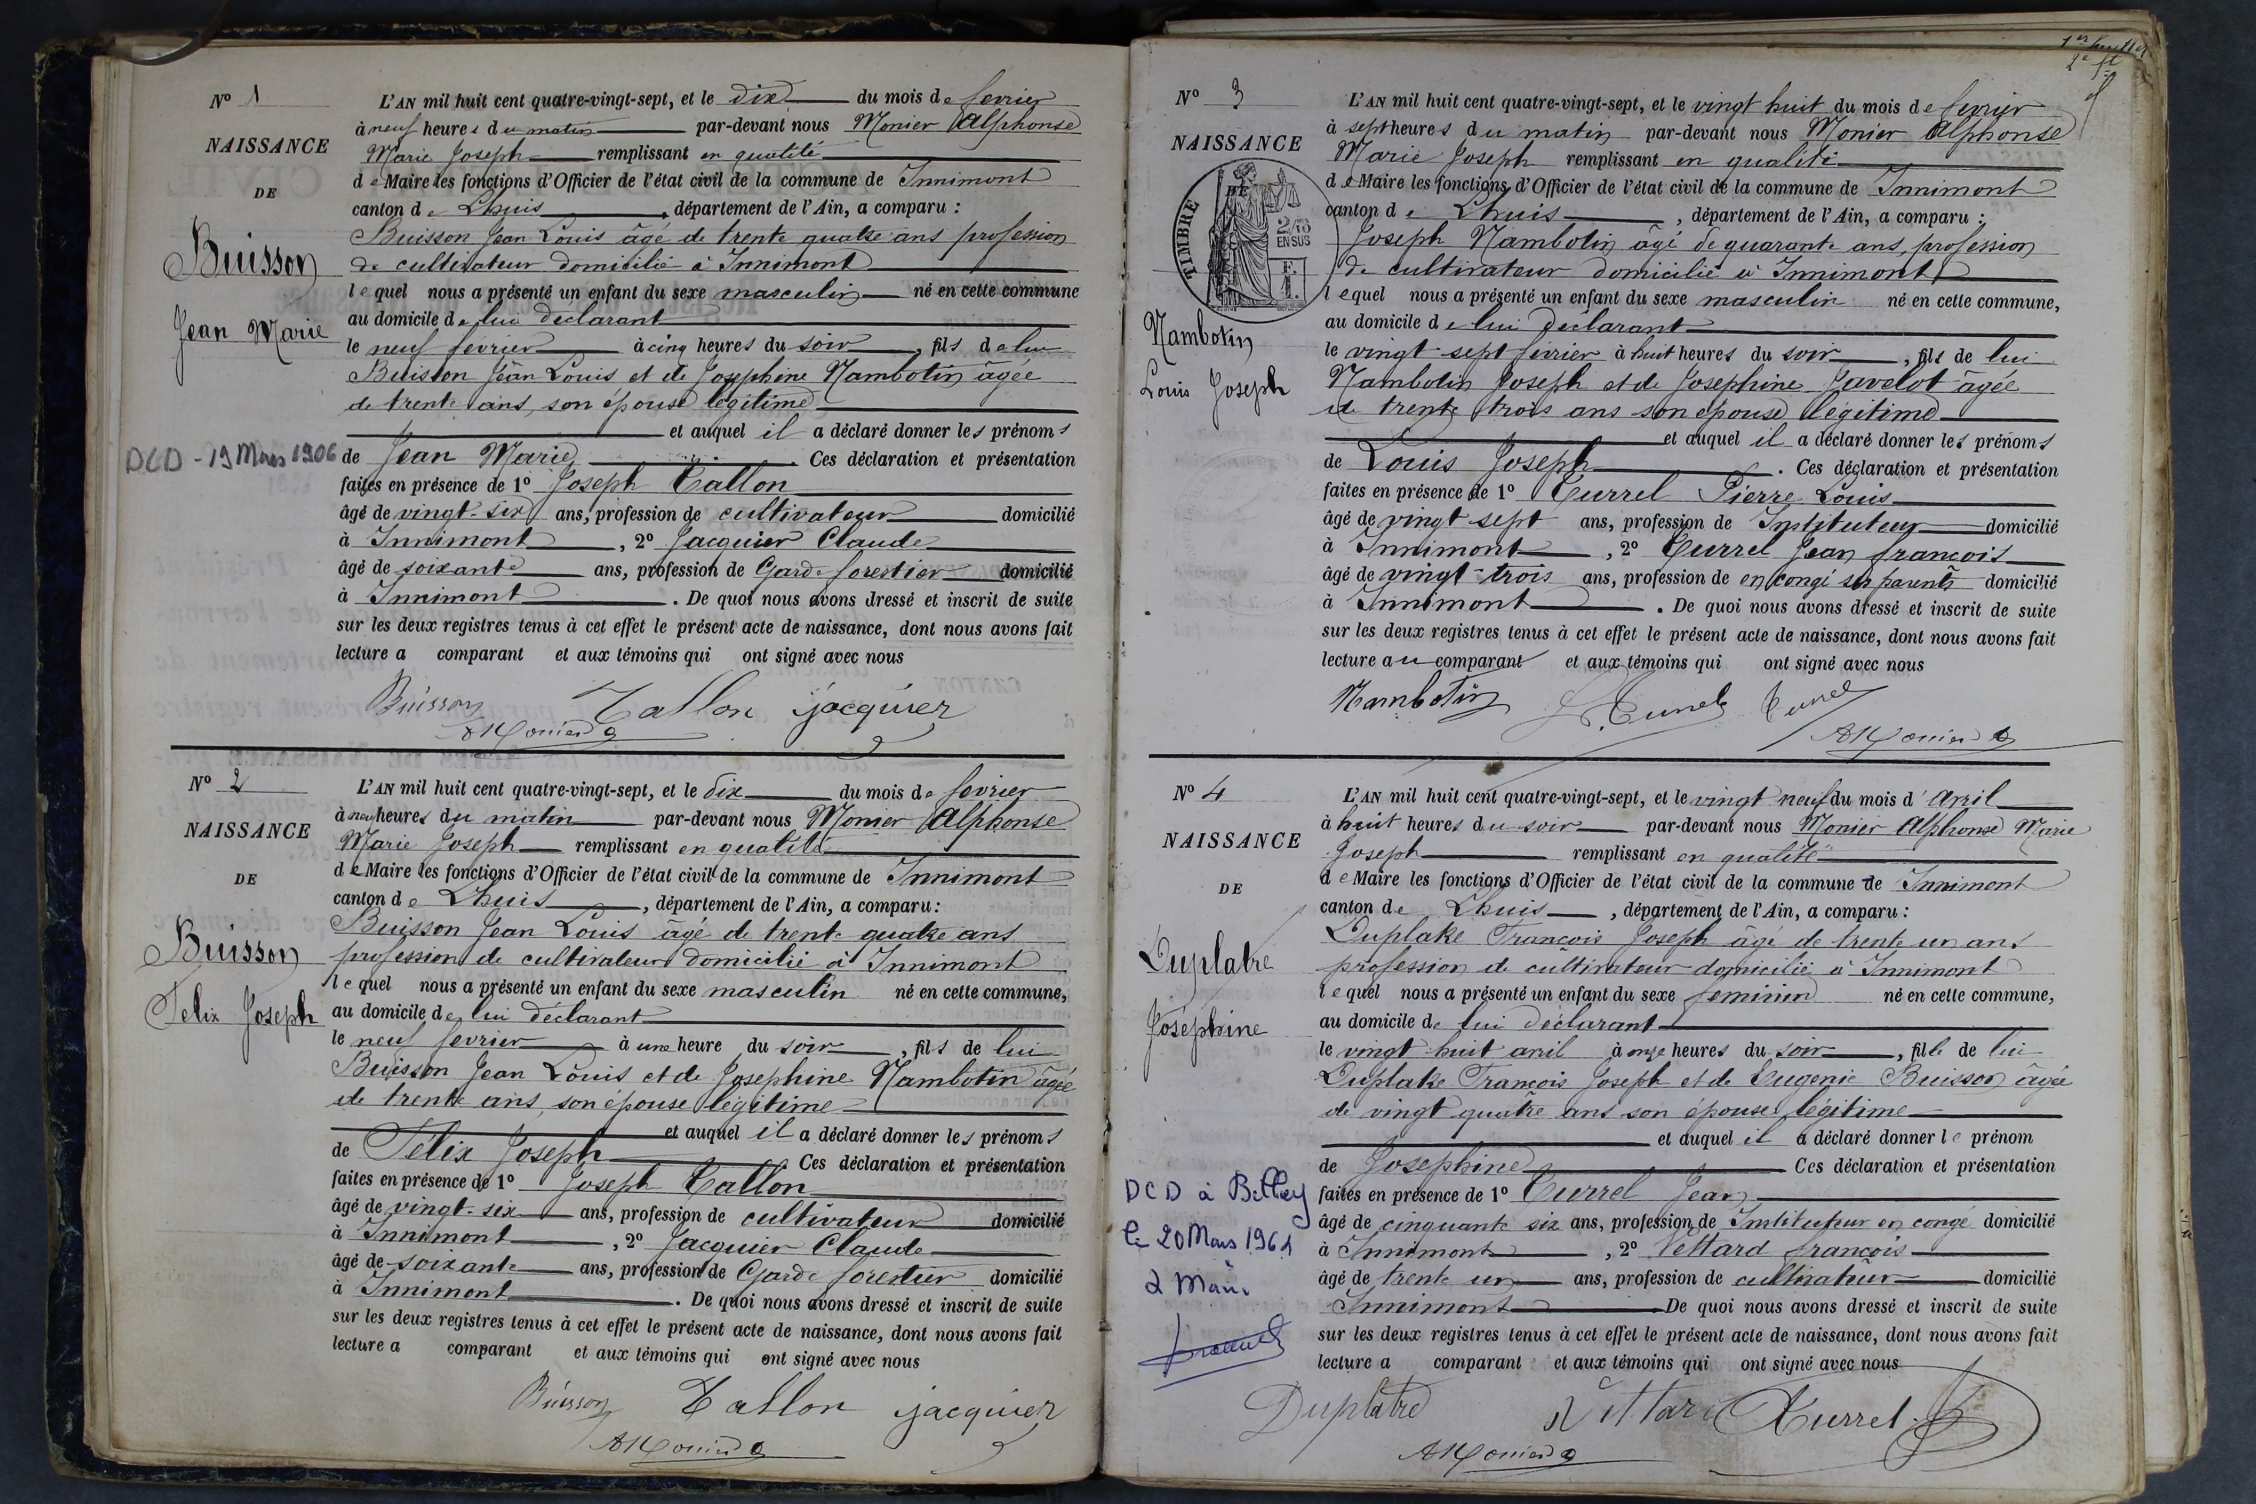 N° 1
NAISSANCE
DE
Buisson
Jean Marie
DCD - 19 Mars 1906
L'AN mil huit cent quatre-vingt-sept, et le dix du mois de fevrier
à neuf heures du matin par-devant nous Monier Alphonse
Marie Joseph remplissant en qualité
de Maire les fonctions d'Officier de l'état civil de la commune de Innimont
canton de Lhuis, département de l'Ain, a comparu :
Buisson Jean Louis âgé de trente quatre ans profession
de cultivateur domicilié à Innimont
lequel nous a présenté un enfant du sexe masculin né en cette commune
au domicile de lui declarant
le neuf fevrier à cinq heures du soir, fils de lui
Buisson Jean Louis et de Josephine Nambotin âgée
de trente ans, son épouse légitime
et auquel il a déclaré donner les prénoms
de Jean Marie. Ces déclaration et présentation
faites en présence de 1° Joseph Tallon
âgé de vingt-six ans, profession de cultivateur domicilié
à Innimont, 2° Jacquier Claude
âgé de soixante ans, profession de Garde forestier domicilié
à Innimont. De quoi nous avons dressé et inscrit de suite
sur les deux registres tenus à cet effet le présent acte de naissance, dont nous avons fait
lecture a comparant et aux témoins qui ont signé avec nous
Buisson Tallon jacquier
AMonier
N° 2
NAISSANCE
DE
Buisson
Felix Joseph
L'AN mil huit cent quatre-vingt-sept, et le dix du mois de fevrier
à neuf heures du matin par-devant nous Monier Alphonse
Marie Joseph remplissant en qualité
de Maire les fonctions d'Officier de l'état civil de la commune de Innimont
canton de Lhuis, département de l'Ain, a comparu :
Buisson Jean Louis âgé de trente quatre ans
profession de cultivateur domicilié à Innimont
lequel nous a présenté un enfant du sexe masculin né en cette commune,
au domicile de lui déclarant
le neuf fevrier à une heure du soir, fils de lui
Buisson Jean Louis et de Josephine Nambotin âgée
de trente ans, son épouse légitime
et auquel il a déclaré donner les prénoms
de Félix Joseph. Ces déclaration et présentation
faites en présence de 1° Joseph Tallon
âgé de vingt-six ans, profession de cultivateur domicilié
à Innimont, 2° Jacquier Claude
âgé de soixante ans, profession de Garde forestier domicilié
à Innimont. De quoi nous avons dressé et inscrit de suite
sur les deux registres tenus à cet effet le présent acte de naissance, dont nous avons fait
lecture a comparant et aux témoins qui ont signé avec nous
Buisson Tallon jacquier
AMonier
1er
2e
N° 3
NAISSANCE
DE
TIMBRE
2/10
EN SUS
F.
1.
Nambotin
Louis Joseph
L'AN mil huit cent quatre-vingt-sept, et le vingt huit du mois de fevrier
à sept heures du matin par-devant nous Monier Alphonse
Marie Joseph remplissant en qualité
de Maire les fonctions d'Officier de l'état civil de la commune de Innimont
canton de Lhuis, département de l'Ain, a comparu :
Joseph Nambotin âgé de quarante ans, profession
de cultivateur domicilié à Innimont
lequel nous a présenté un enfant du sexe masculin né en cette commune,
au domicile de lui declarant
le vingt-sept février à huit heures du soir, fils de lui
Nambotin Joseph et de Josephine Javelot âgée
de trente trois ans son épouse légitime
et auquel il a déclaré donner les prénoms
de Louis Joseph. Ces déclaration et présentation
faites en présence de 1° Turrel Pierre Louis
âgé de vingt sept ans, profession de Instituteur domicilié
à Innimont, 2° Turrel Jean françois
âgé de vingt-trois ans, profession de en congé ses parents domicilié
à Innimont. De quoi nous avons dressé et inscrit de suite
sur les deux registres tenus à cet effet le présent acte de naissance, dont nous avons fait
lecture au comparant et aux témoins qui ont signé avec nous
Nambotin Turrel Turrel
AMonier
N° 4
NAISSANCE
DE
Duplatre
Joséphine
DCD à Belley
le 20 Mars 1964
L'AN mil huit cent quatre-vingt-sept, et le vingt neuf du mois d'Avril
à huit heures du soir par-devant nous Monier Alphonse Marie
Joseph remplissant en qualité
de Maire les fonctions d'Officier de l'état civil de la commune de Innimont
canton de Lhuis, département de l'Ain, a comparu :
Duplatre François Joseph âgé de trente un ans
profession de cultivateur domicilié à Innimont
lequel nous a présenté un enfant du sexe feminin né en cette commune,
au domicile de lui déclarant
le vingt huit avril à onze heures du soir, fille de lui
Duplatre François Joseph et de Eugenie Buisson âgée
de vingt quatre ans son épouse légitime
et auquel il a déclaré donner le prénom
de Josephine Ces déclaration et présentation
faites en présence de 1° Turrel Jean
âgé de cinquante six ans, profession de Instituteur en congé domicilié
à Innimont, 2° Vettard françois
âgé de trente un ans, profession de cultivateur domicilié
Innimont. De quoi nous avons dressé et inscrit de suite
sur les deux registres tenus à cet effet le présent acte de naissance, dont nous avons fait
lecture a comparant et aux témoins qui ont signé avec nous
Duplatre Vettard Turrel
AMonier